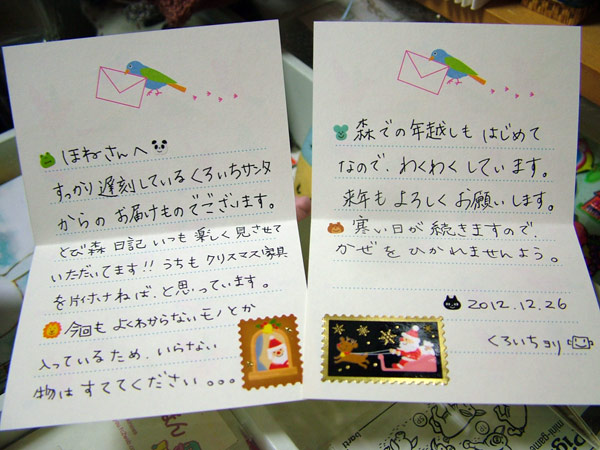 ほねさんへ
すっかり遅刻しているくろいちサンタ
からのお届けものでございます。
とび森日記いつも楽しく見させて
いただいてます!!うちもクリスマス家具
を片付けねば、と思っています。
今回もよくわからないモノとか
入っているため、いらない
物はすててください。。。
森での年越しもはじめて
なので、わくわくしています。
来年もよろしくお願いします。
寒い日が続きますので
かぜをひかれませんよう。
2012.12.26
くろいちより
mini-game